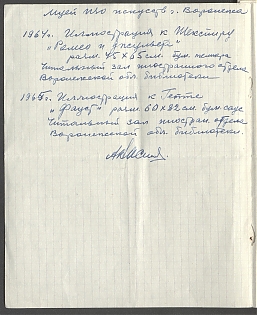 Музей изо искусств г. Воронежа
1964г. Иллюстрация к Шекспиру
„Ромео и Джульета"
разм. 45 х 65 см. бум. темпера
Читальный зал иностранного отдела
Воронежской обл. библиотеки.
1965г. Иллюстрация к Гетте
„Фауст" разм. 60 х 82 см. бум.
Читальный зал иностран. отдела
Воронежской обл. библиотеки.